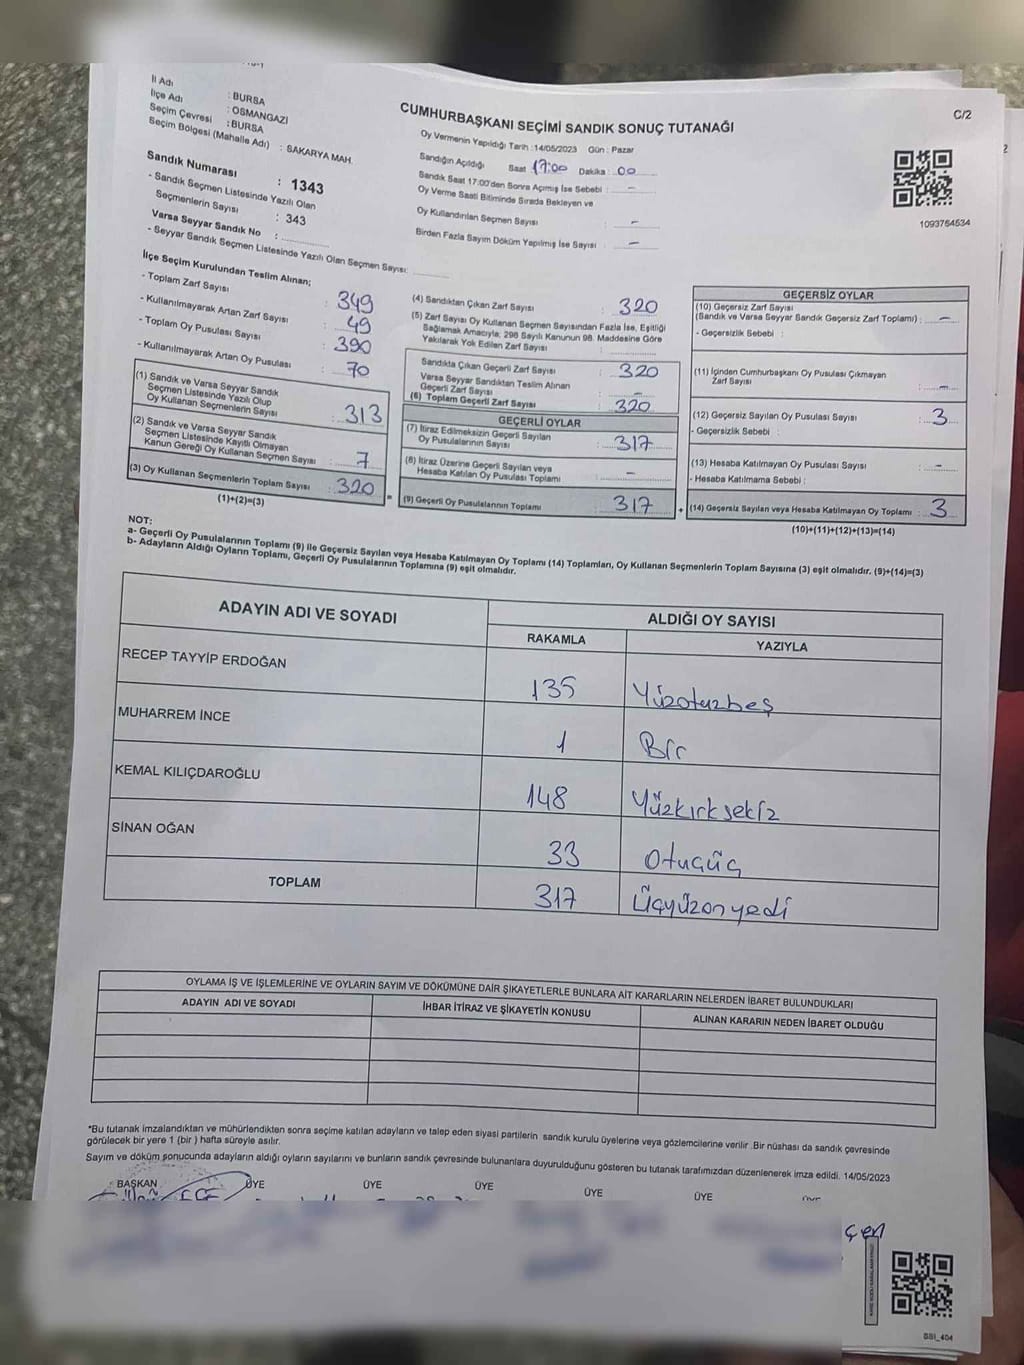 C/2
İl Adı : BURSA
İlçe Adı : OSMANGAZİ
Seçim Çevresi : BURSA
Seçim Bölgesi (Mahalle Adı) : SAKARYA MAH.
Sandık Numarası : 1343
- Sandık Seçmen Listesinde Yazılı Olan
Seçmenlerin Sayısı : 343
Varsa Seyyar Sandık No :
- Seyyar Sandık Seçmen Listesinde Yazılı Olan Seçmen Sayısı:
CUMHURBAŞKANI SEÇİMİ SANDIK SONUÇ TUTANAĞI
Oy Vermenin Yapıldığı Tarih :14/05/2023 Gün : Pazar
Sandığın Açıldığı Saat 17:00 Dakika : 00
Sandık Saat 17.00'den Sonra Açılmış İse Sebebi : -
Oy Verme Saati Bitiminde Sırada Bekleyen ve
Oy Kullandırılan Seçmen Sayısı : -
Birden Fazla Sayım Döküm Yapılmış İse Sayısı : -
1093764534
İlçe Seçim Kurulundan Teslim Alınan;
- Toplam Zarf Sayısı : 349
- Kullanılmayarak Artan Zarf Sayısı : 49
- Toplam Oy Pusulası Sayısı : 390
- Kullanılmayarak Artan Oy Pusulası : 70
(1) Sandık ve Varsa Seyyar Sandık
Seçmen Listesinde Yazılı Olup
Oy Kullanan Seçmenlerin Sayısı : 313
(2) Sandık ve Varsa Seyyar Sandık
Seçmen Listesinde Kayıtlı Olmayan
Kanun Gereği Oy Kullanan Seçmen Sayısı : 7
(3) Oy Kullanan Seçmenlerin Toplam Sayısı : 320
(1)+(2)=(3)
=
(4) Sandıktan Çıkan Zarf Sayısı : 320
(5) Zarf Sayısı Oy Kullanan Seçmen Sayısından Fazla İse, Eşitliği
Sağlamak Amacıyla; 298 Sayılı Kanunun 98. Maddesine Göre
Yakılarak Yok Edilen Zarf Sayısı :
Sandıkta Çıkan Geçerli Zarf Sayısı : 320
Varsa Seyyar Sandıktan Teslim Alınan
Geçerli Zarf Sayısı : -
(6) Toplam Geçerli Zarf Sayısı : 320
GEÇERLİ OYLAR
(7) İtiraz Edilmeksizin Geçerli Sayılan
Oy Pusulalarının Sayısı : 317
(8) İtiraz Üzerine Geçerli Sayılan veya
Hesaba Katılan Oy Pusulası Toplamı : -
(9) Geçerli Oy Pusulalarının Toplamı : 317
+
GEÇERSİZ OYLAR
(10) Geçersiz Zarf Sayısı
(Sandık ve Varsa Seyyar Sandık Geçersiz Zarf Toplamı) : -
- Geçersizlik Sebebi :
(11) İçinden Cumhurbaşkanı Oy Pusulası Çıkmayan
Zarf Sayısı : -
(12) Geçersiz Sayılan Oy Pusulası Sayısı : 3
- Geçersizlik Sebebi :
(13) Hesaba Katılmayan Oy Pusulası Sayısı : -
- Hesaba Katılmama Sebebi :
(14) Geçersiz Sayılan veya Hesaba Katılmayan Oy Toplamı : 3
(10)+(11)+(12)+(13)=(14)
NOT:
a- Geçerli Oy Pusulalarının Toplamı (9) ile Geçersiz Sayılan veya Hesaba Katılmayan Oy Toplamı (14) Toplamları, Oy Kullanan Seçmenlerin Toplam Sayısına (3) eşit olmalıdır. (9)+(14)=(3)
b- Adayların Aldığı Oyların Toplamı, Geçerli Oy Pusulalarının Toplamına (9) eşit olmalıdır.
ADAYIN ADI VE SOYADI ALDIĞI OY SAYISI
RAKAMLA YAZIYLA
RECEP TAYYİP ERDOĞAN 135 Yüzotuzbeş
MUHARREM İNCE 1 Bir
KEMAL KILIÇDAROĞLU 148 Yüzkırksekiz
SİNAN OĞAN 33 Otuzüç
TOPLAM 317 Üçyüzonyedi
OYLAMA İŞ VE İŞLEMLERİNE VE OYLARIN SAYIM VE DÖKÜMÜNE DAİR ŞİKAYETLERLE BUNLARA AİT KARARLARIN NELERDEN İBARET BULUNDUKLARI
ADAYIN ADI VE SOYADI İHBAR İTİRAZ VE ŞİKAYETİN KONUSU ALINAN KARARIN NEDEN İBARET OLDUĞU
*Bu tutanak imzalandıktan ve mühürlendikten sonra seçime katılan adayların ve talep eden siyasi partilerin sandık kurulu üyelerine veya gözlemcilerine verilir .Bir nüshası da sandık çevresinde
görülecek bir yere 1 (bir ) hafta süreyle asılır.
Sayım ve döküm sonucunda adayların aldığı oyların sayılarını ve bunların sandık çevresinde bulunanlara duyurulduğunu gösteren bu tutanak tarafımızdan düzenlenerek imza edildi. 14/05/2023
BAŞKAN ÜYE ÜYE ÜYE ÜYE ÜYE
BSI_404